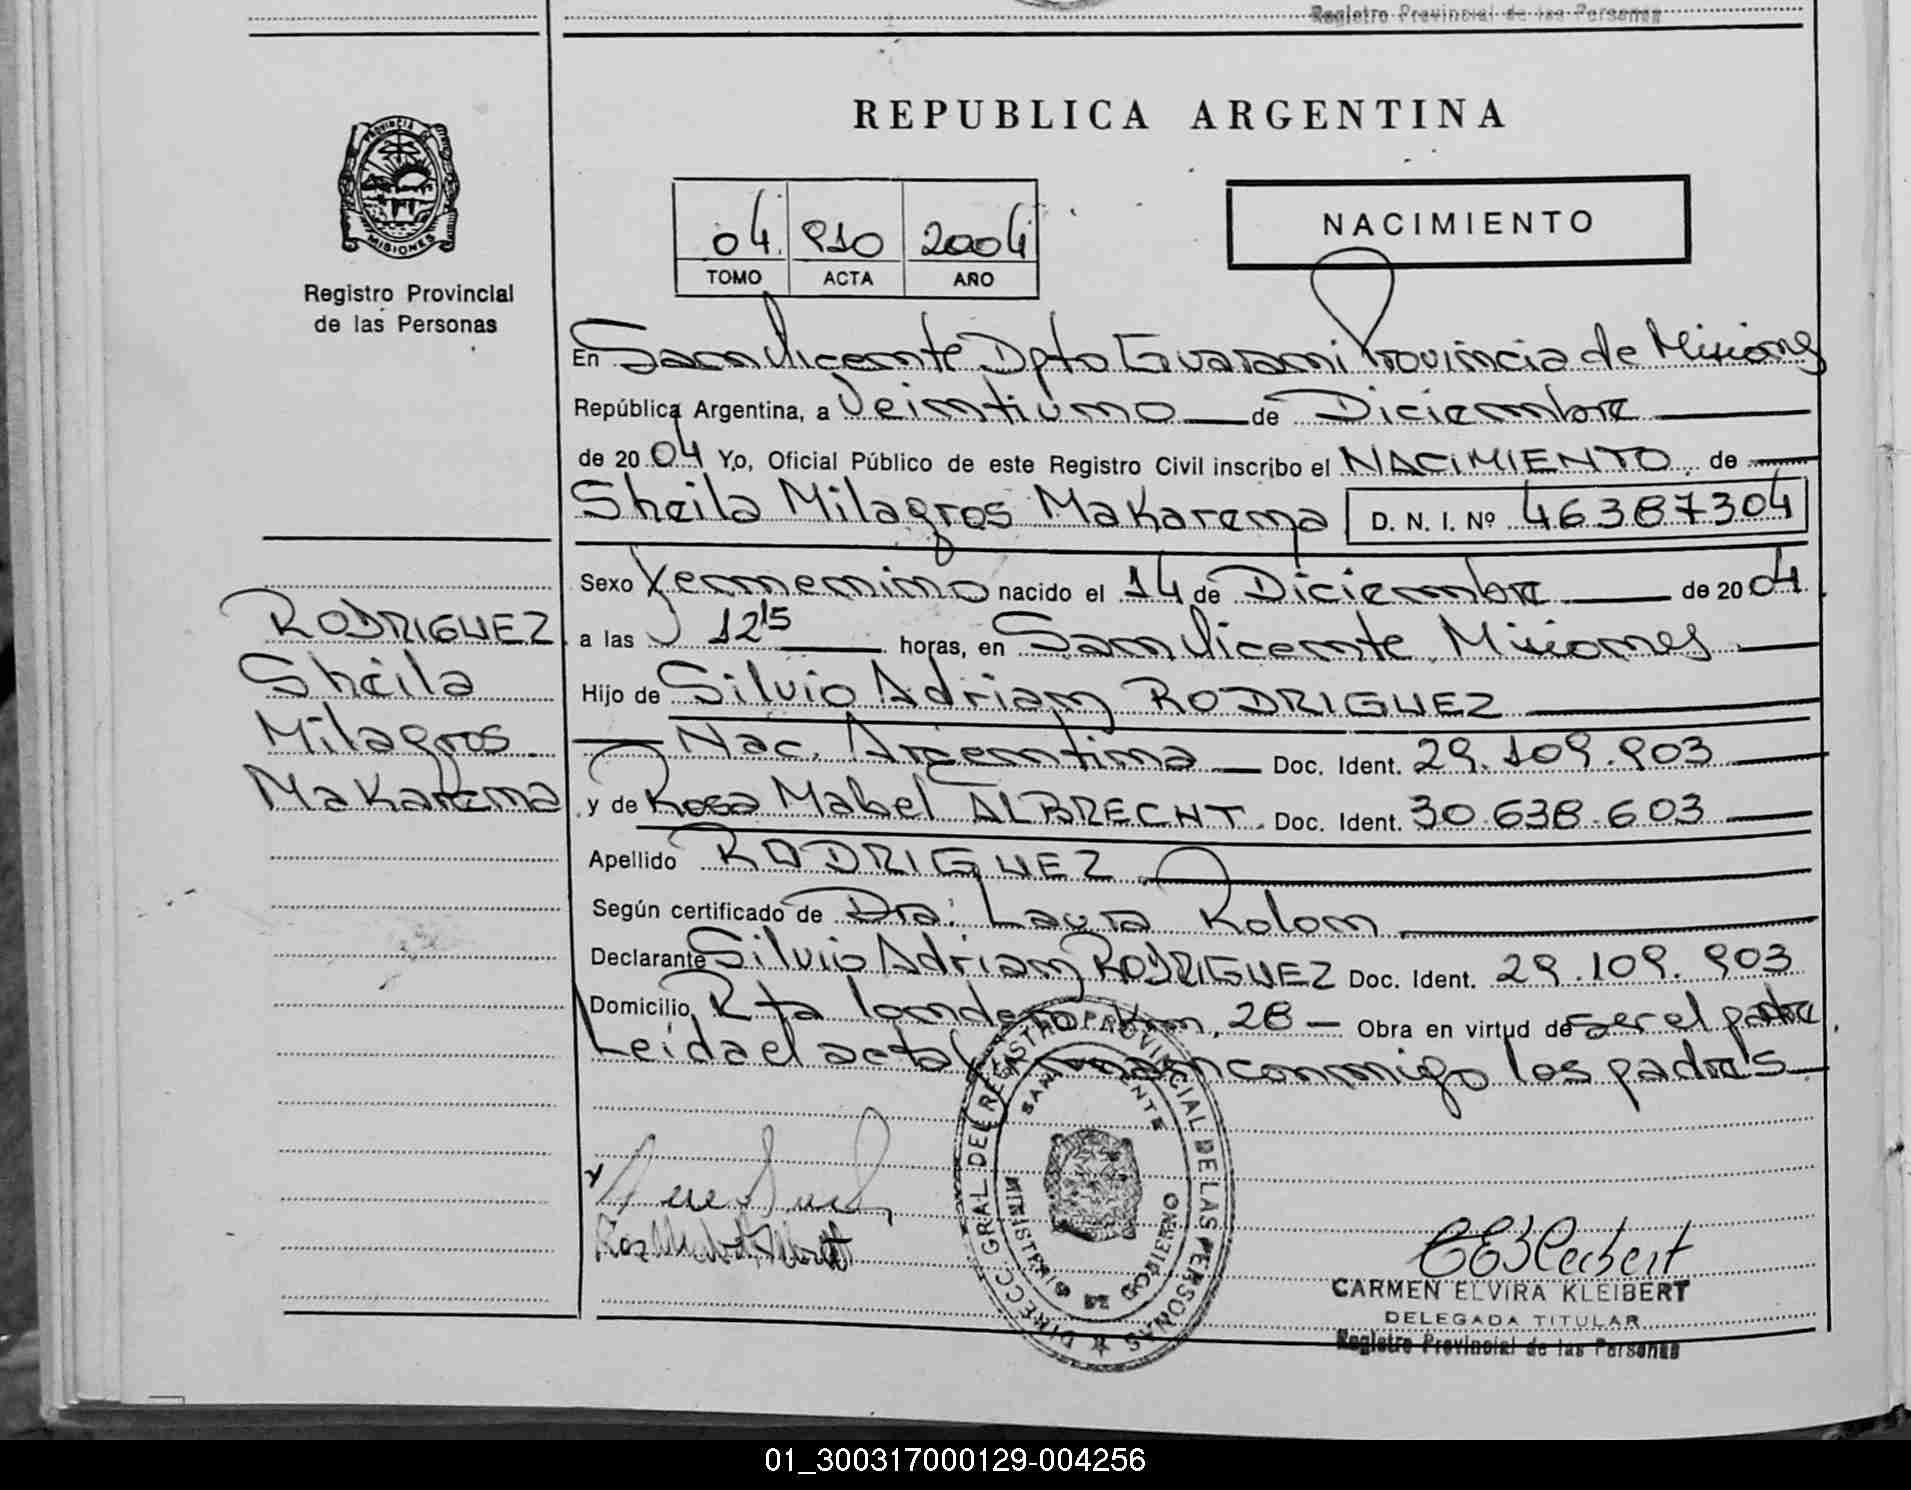 Registro Provincial de las Personas
PROVINCIA DE
MISIONES
Registro Provincial
de las Personas
REPUBLICA ARGENTINA
04 910 2004
TOMO ACTA AÑO
NACIMIENTO
En San Vicente Dpto Guarani Provincia de Misiones
República Argentina, a Veintiuno de Diciembre
de 20 04 Yo, Oficial Público de este Registro Civil inscribo el NACIMIENTO de
Sheila Milagros Makarema D. N. I. Nº 46387304
Sexo Femenino nacido el 14 de Diciembre de 20 04
a las 12 15 horas, en San Vicente Misiones
Hijo de Silvio Adrian RODRIGUEZ
Nac. Argentina Doc. Ident. 29.109.903
y de Rosa Mabel ALBRECHT. Doc. Ident. 30.638.603
Apellido RODRIGUEZ
Según certificado de Dra. Laura Kolom
Declarante Silvio Adrian RODRIGUEZ Doc. Ident. 29.109.903
Domicilio Rta londero Km. 28 Obra en virtud de ser el padre
Leida el acta conmigo los padres
RODRIGUEZ
Sheila
Milagros
Makarema
DIRECC. GRAL. DEL REGISTRO PROVINCIAL DE LAS PERSONAS
SAN VICENTE
MINISTERIO DE GOBIERNO
CEKleibert
CARMEN ELVIRA KLEIBERT
DELEGADA TITULAR
Registro Provincial de las Personas
01_300317000129-004256